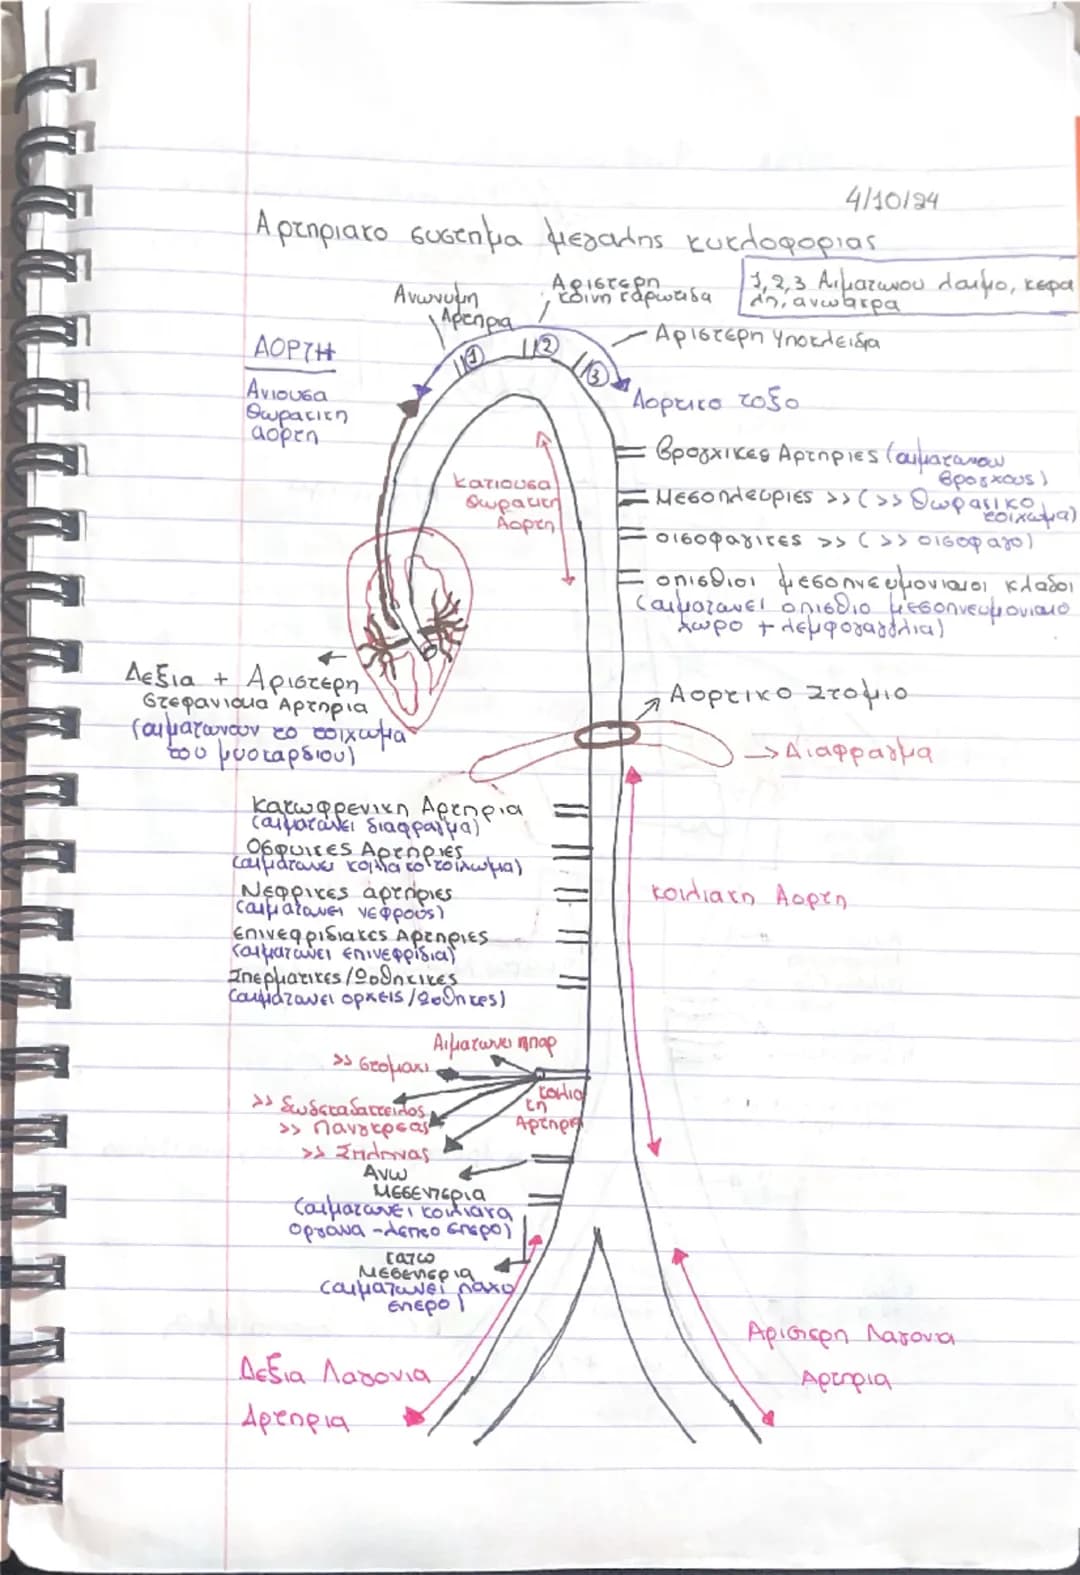 4/10/24
Αρτηριακο συστημα μεγαλης κυκλοφοριας
1,2,3 Αιματωνου λαιμο, κεφα
λη, ανωακρα
Αριστερη
κοινη καρωτιδα
Ανωνυμη
Αρτηρια
Αριστερη υποκλειδα
ΑΟΡΤΗ
1
2
3
Ανιουσα
Θωρακικη
αορτη
Αορτικο τοξο
Βρογχικες Αρτηριες (αιματωνουν
βρογχους)
Μεσοπλευριες >> (>> Θωρακικο
τοιχωμα)
οισοφαγικες >> (>> οισοφαγο)
οπισθιοι μεσοπνευμονιαιοι κλαδοι
(αιματωνει οπισθιο μεσοπνευμονιαιο
χωρο + λεμφογαγγλια)
Κατιουσα
Θωρακικη
Αορτη
Δεξια + Αριστερη
Στεφανιαια Αρτηρια
(αιματωνουν το τοιχωμα
του μυοκαρδιου)
Αορτικο Στομιο
Διαφραγμα
Κατωφρενικη Αρτηρια
(αιματωνει διαφραγμα)
Οσφυικες Αρτηριες
(αιματωνει κοιλιακο τοιχωμα)
Νεφρικες αρτηριες
(αιματωνει νεφρους)
Επινεφριδιακες Αρτηριες
(αιματωνει επινεφριδια)
Σπερματικες/Ωοθηκικες
(αιματωνει ορχεις/Ωοθηκες)
κοιλιακη Αορτη
Αιματωνει ηπαρ
>> στομαχι
>> δωδεκαδακτυλος
>> Πανγκρεας
>> Σπληνας
κοιλια
κη
Αρτηρια
Ανω
Μεσεντερια
(αιματωνει κοιλιακα
οργανα - λεπτο εντερο)
κατω
Μεσεντερια
(αιματωνει παχυ
εντερο)
Δεξια Λαγονια
Αρτηρια
Αριστερη Λαγονια
Αρτηρια